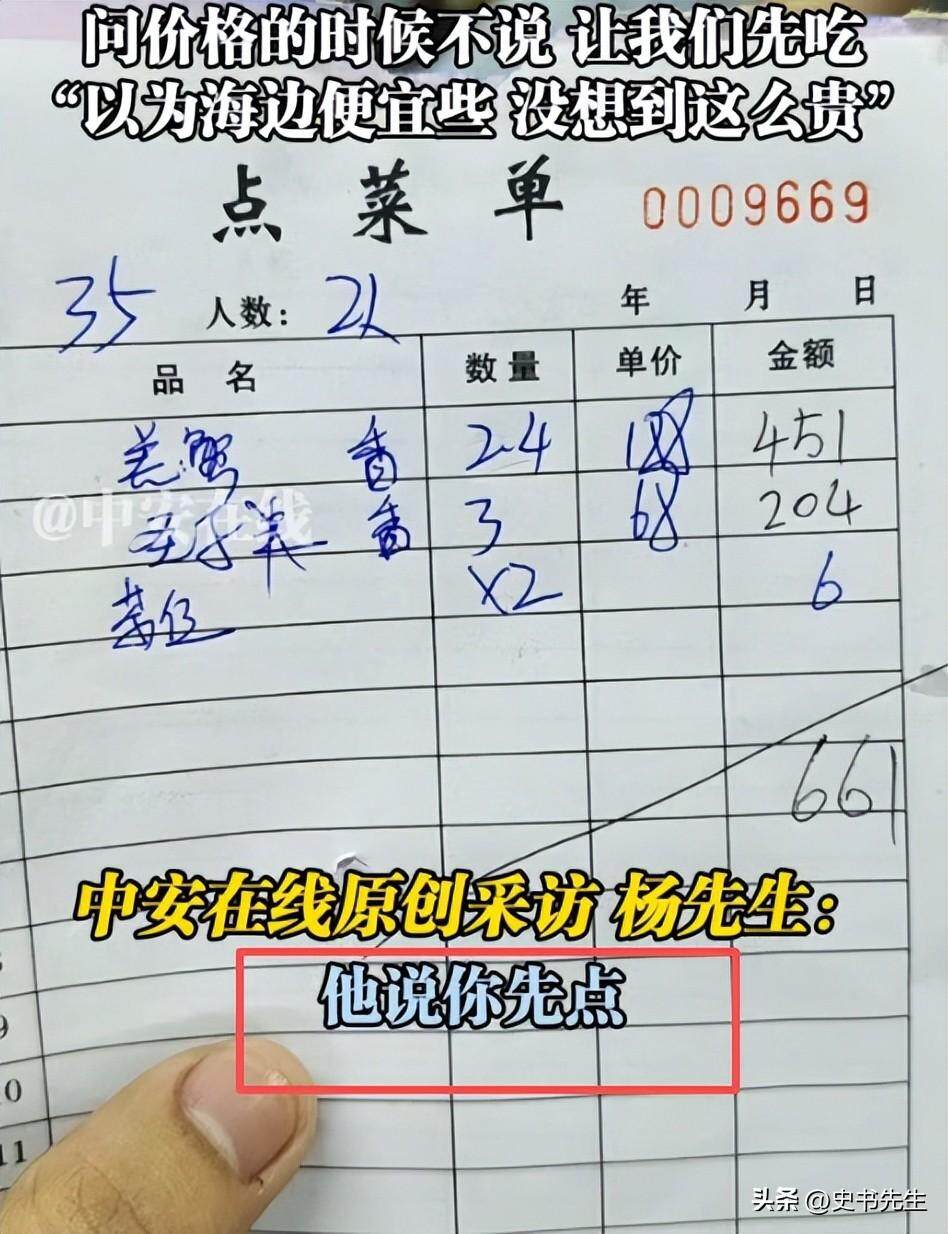 问价格的时候不说 让我们先吃
“以为海边便宜些 没想到这么贵”
点菜单 0009669
35 人数: 2人 年 月 日
品名 数量 单价 金额
羔蟹 香 2.4 188 451
香 3 68 204
@中安在线
茶位 x2 6
661
中安在线原创采访 杨先生:
他说你先点
9
10
11
头条 @史书先生